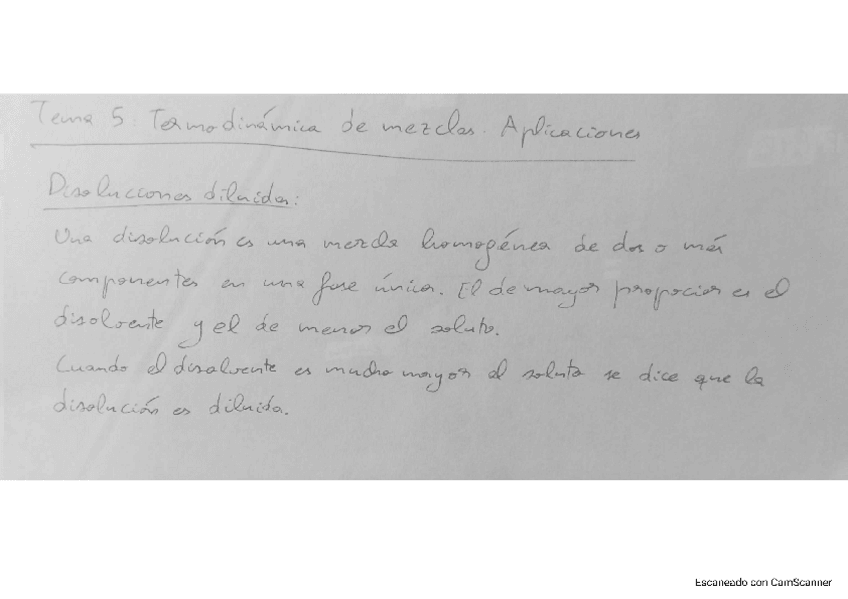 Tema 5. Termodinámica de mezclas. Aplicaciones
Disoluciones diluidas:
Una disolución es una mezcla homogénea de dos o más
componentes en una fase única. El de mayor proporcion es el
disolvente y el de menor el soluto.
Cuando el disolvente es mucho mayor al soluto se dice que la
disolución es diluida.
Escaneado con CamScanner